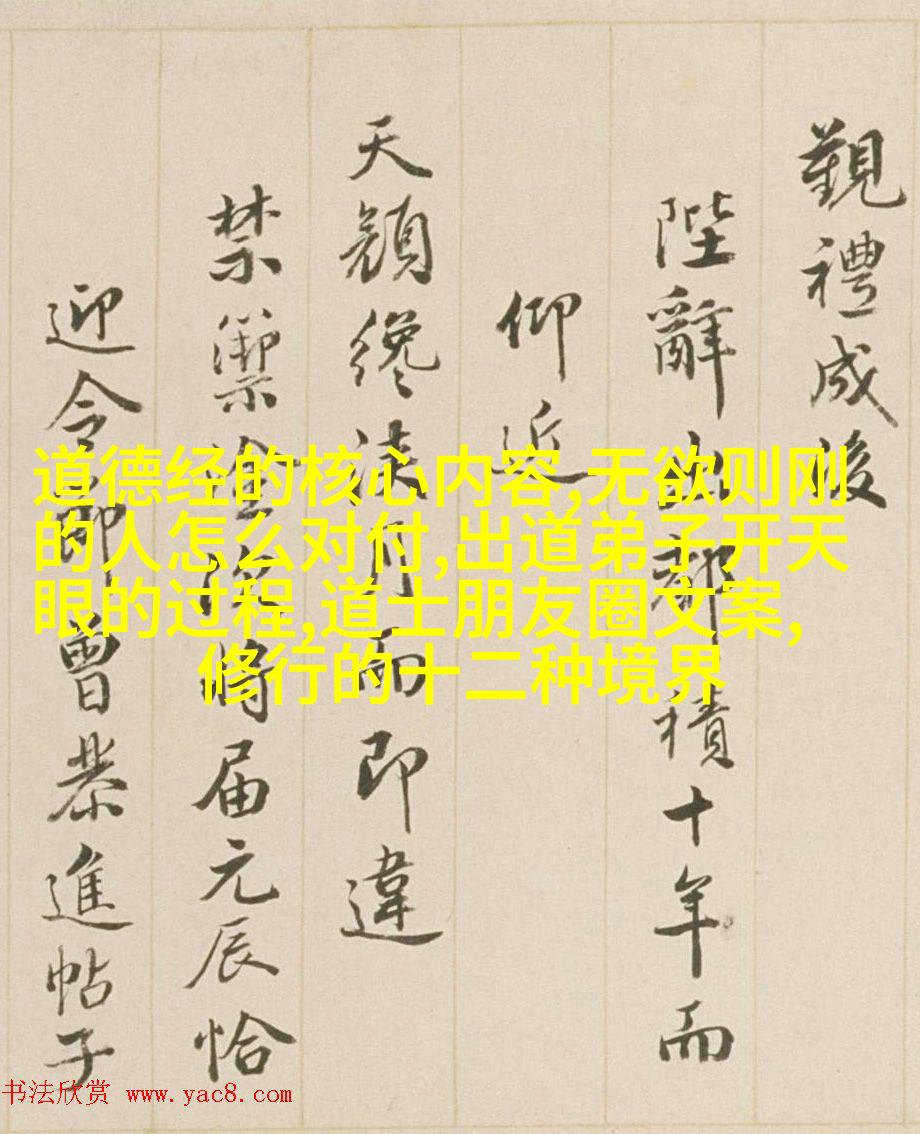 覲禮成後
陛辭出都積十年而
仰近
天顏纔浹月而即違
禁籞將届元辰恰
迎令節曾恭進帖子
道德经的核心内容,无欲则刚
的人怎么对付,出道弟子开天
眼的过程,道士朋友圈文案,
修行的十二种境界
书法欣赏 www.yac8.com